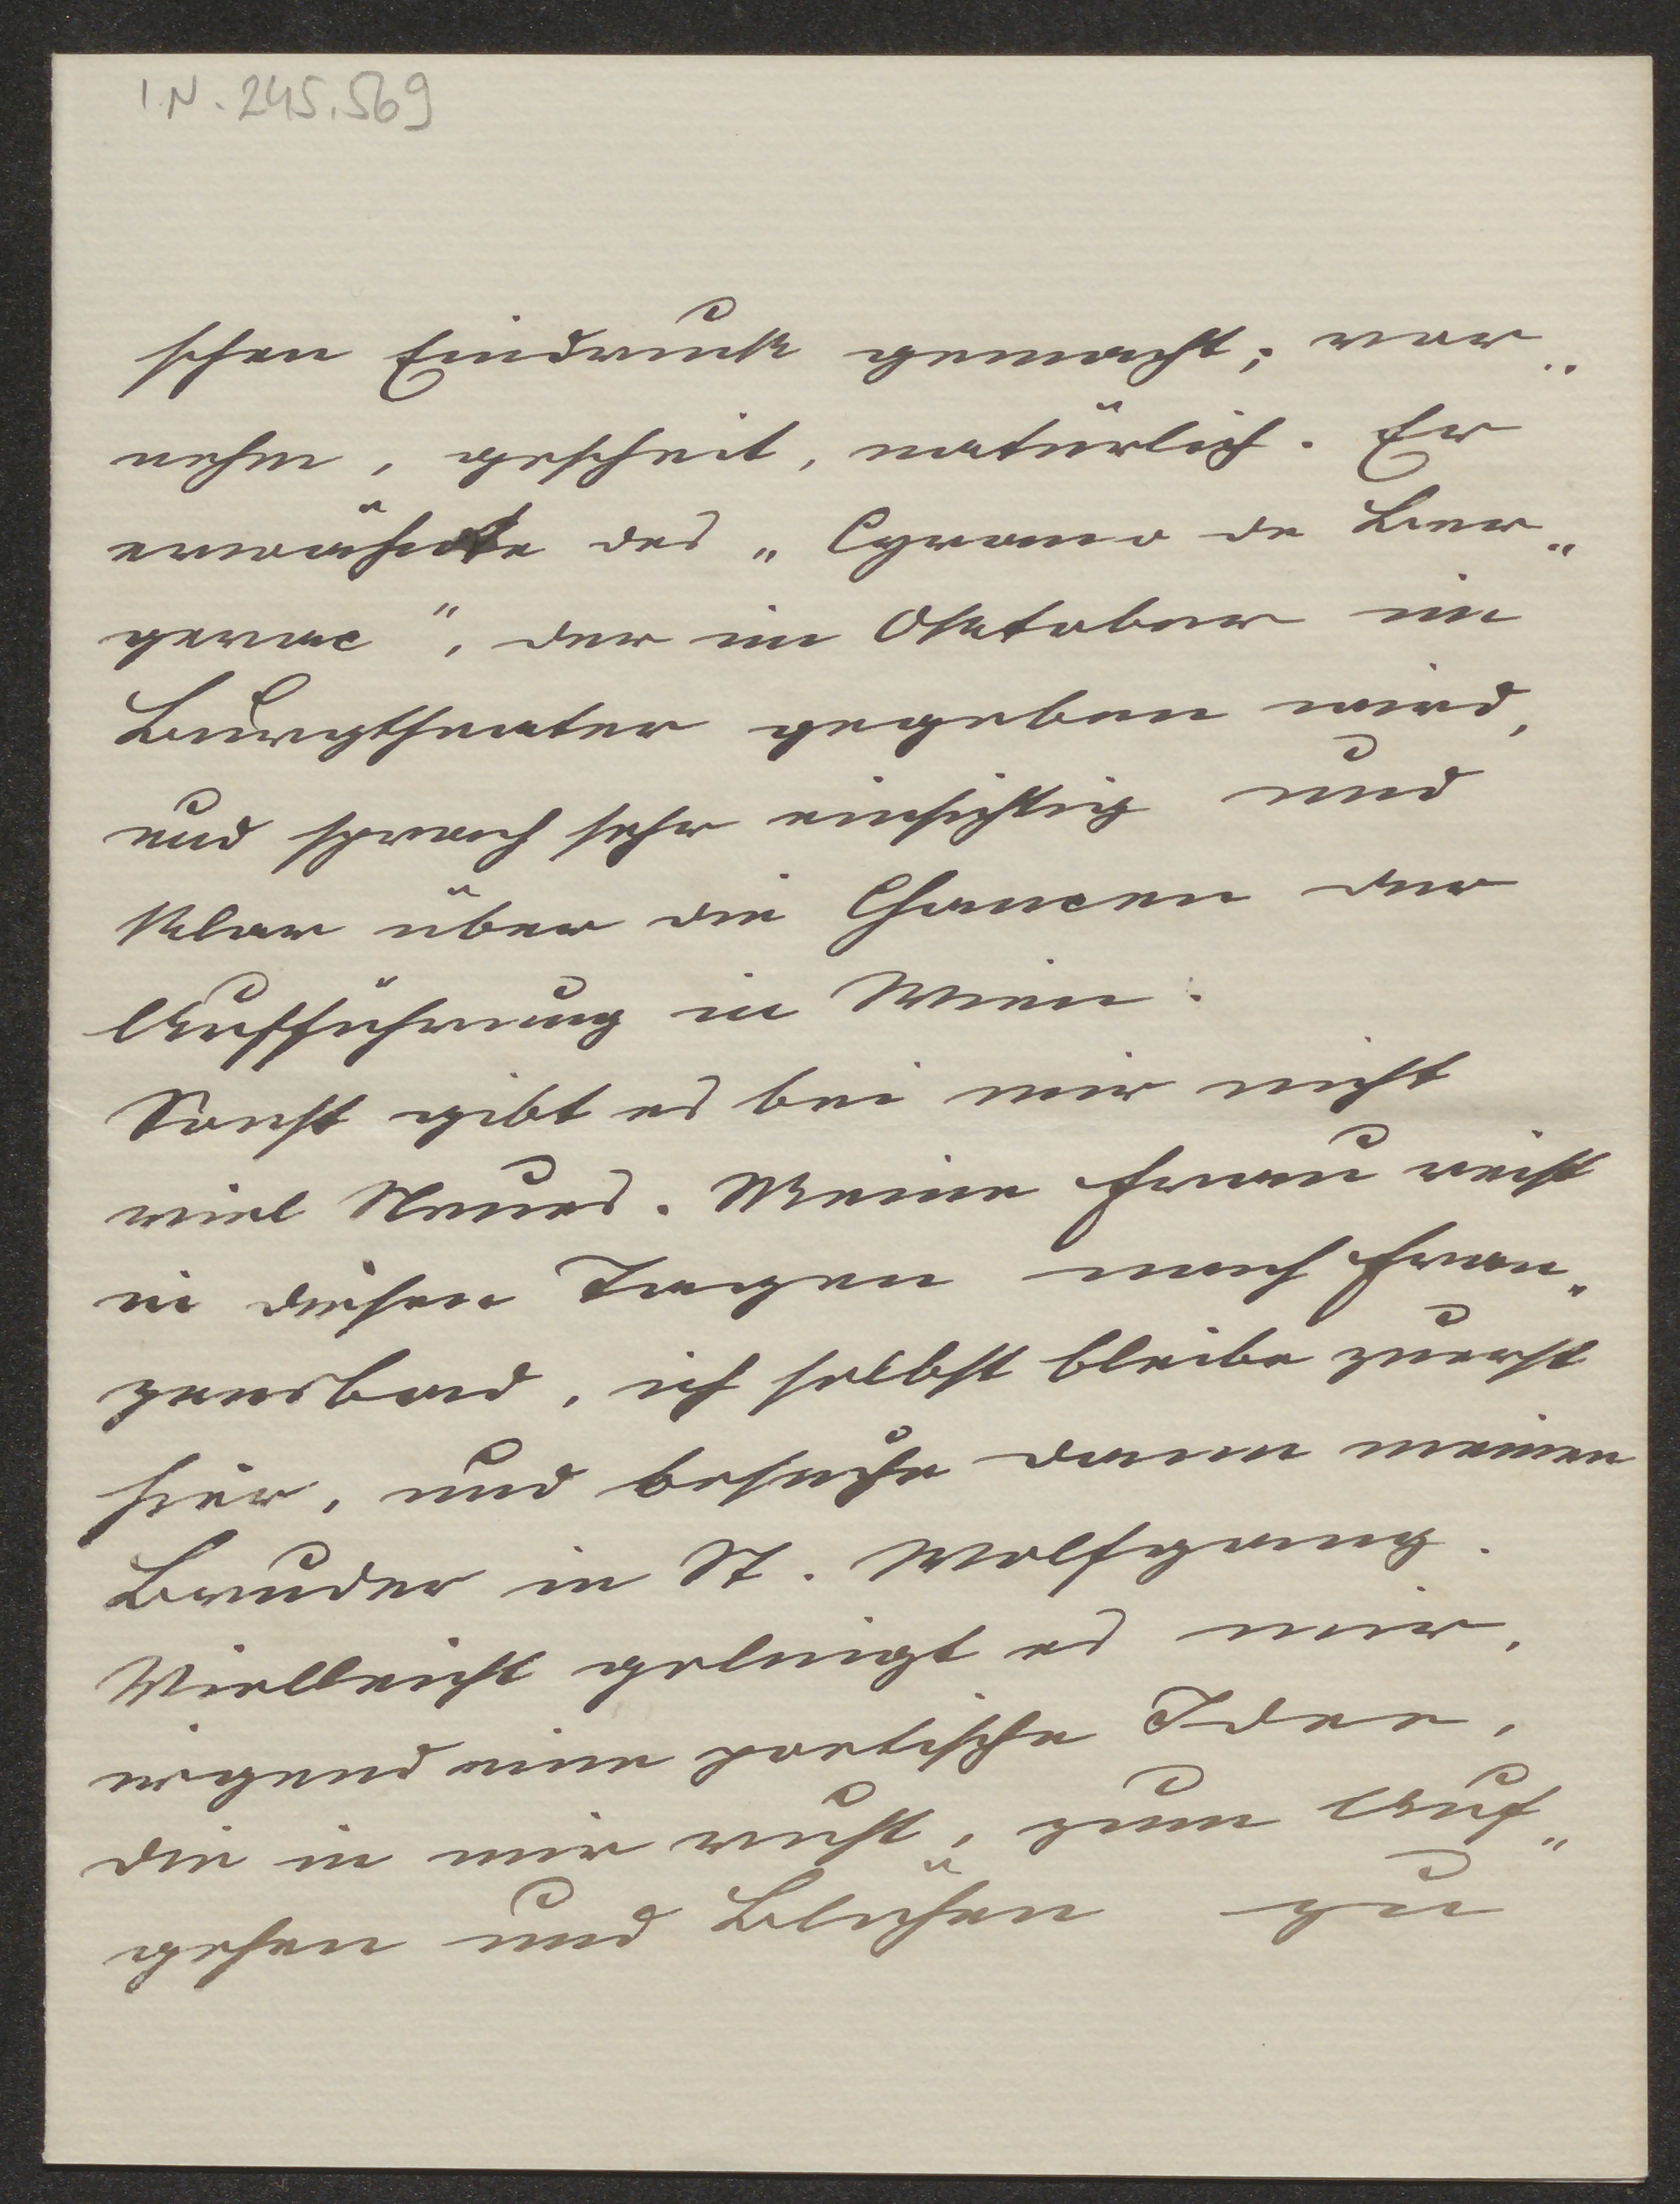 I.N. 245.569
schen Eindruck gemacht; vor„
nehm, gescheit, natürlich. Er
erwähnte des „Cyrano de Ber„
gerac“, der im Oktober im
Burgtheater gegeben wird,
und sprach sehr einsichtig und
klar über die Chancen der
Aufführung in Wien.
Sonst gibt es bei mir nicht
viel Neues. Meine Frau reist
in diesen Tagen nach Fran„
zensbad, ich selbst bleibe zuerst
hier, und besuche dann meinen
Bruder in St. Wolfgang.
Vielleicht gelingt es mir,
irgend eine poetische Idee,
die in mir ruht, zum Auf„
gehen und Blühen zu